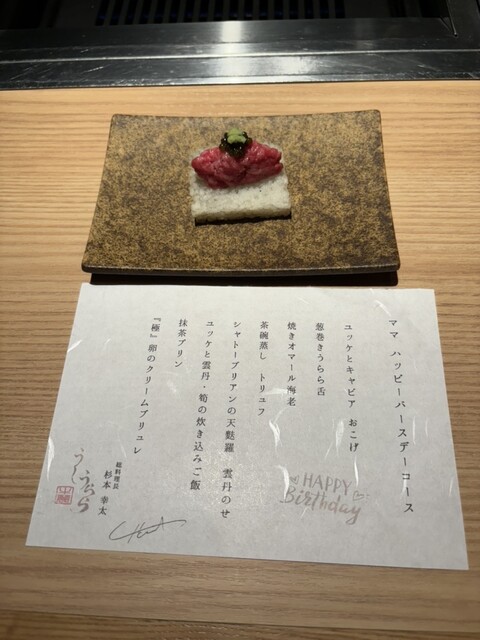 ママ ハッピーバースデーコース
ユッケとキャビア おこげ
葱巻きうらら舌
焼きオマール海老
茶碗蒸し トリュフ
シャトーブリアンの天麩羅 雲丹のせ
ユッケと雲丹・筍の炊き込みご飯
抹茶プリン
『極』卵のクリームブリュレ
HAPPY
Birthday
総料理長
杉本 幸太
うし
うらら